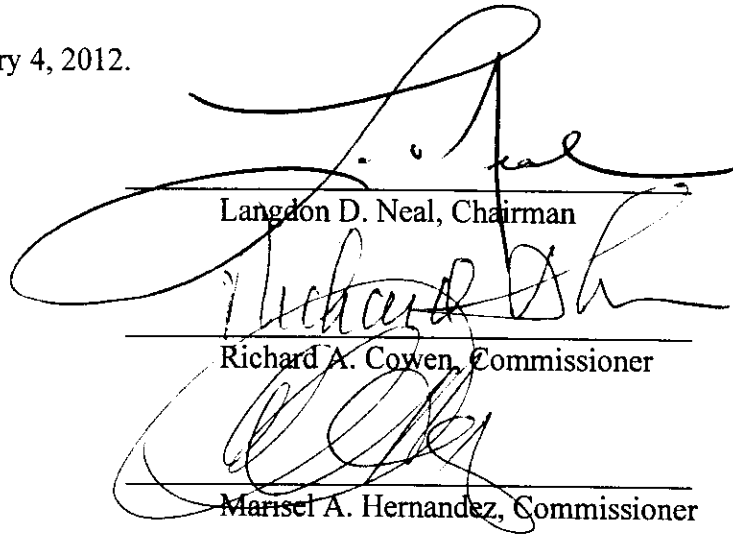 ry 4, 2012.
Neal
Langdon D. Neal, Chairman
Richard
Richard A. Cowen, Commissioner
Marisel A. Hernandez, Commissioner